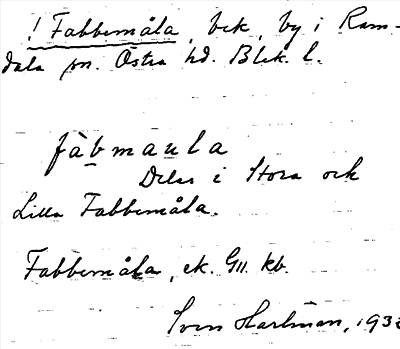 ! Fabbemåla, bek, by i Ram-
dala sn. Östra hd. Blek. l.
fàbmaula
Delas i Stora och
Lilla Fabbemåla.
Fabbemåla, ek. G11. kb.
Sven Hartman, 193